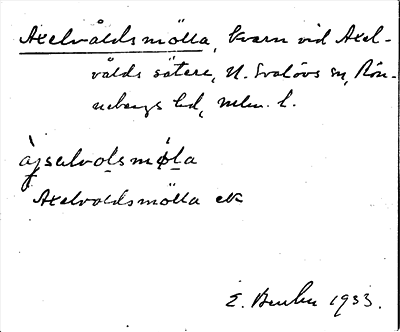 Axelvåldsmölla, kvarn vid Axel-
vålds säteri, N. Svalövs sn, Rön-
nebergs hd, mlm. l.
àjsalvolsmøla
Axelvoldsmölla ek
E. 1933.